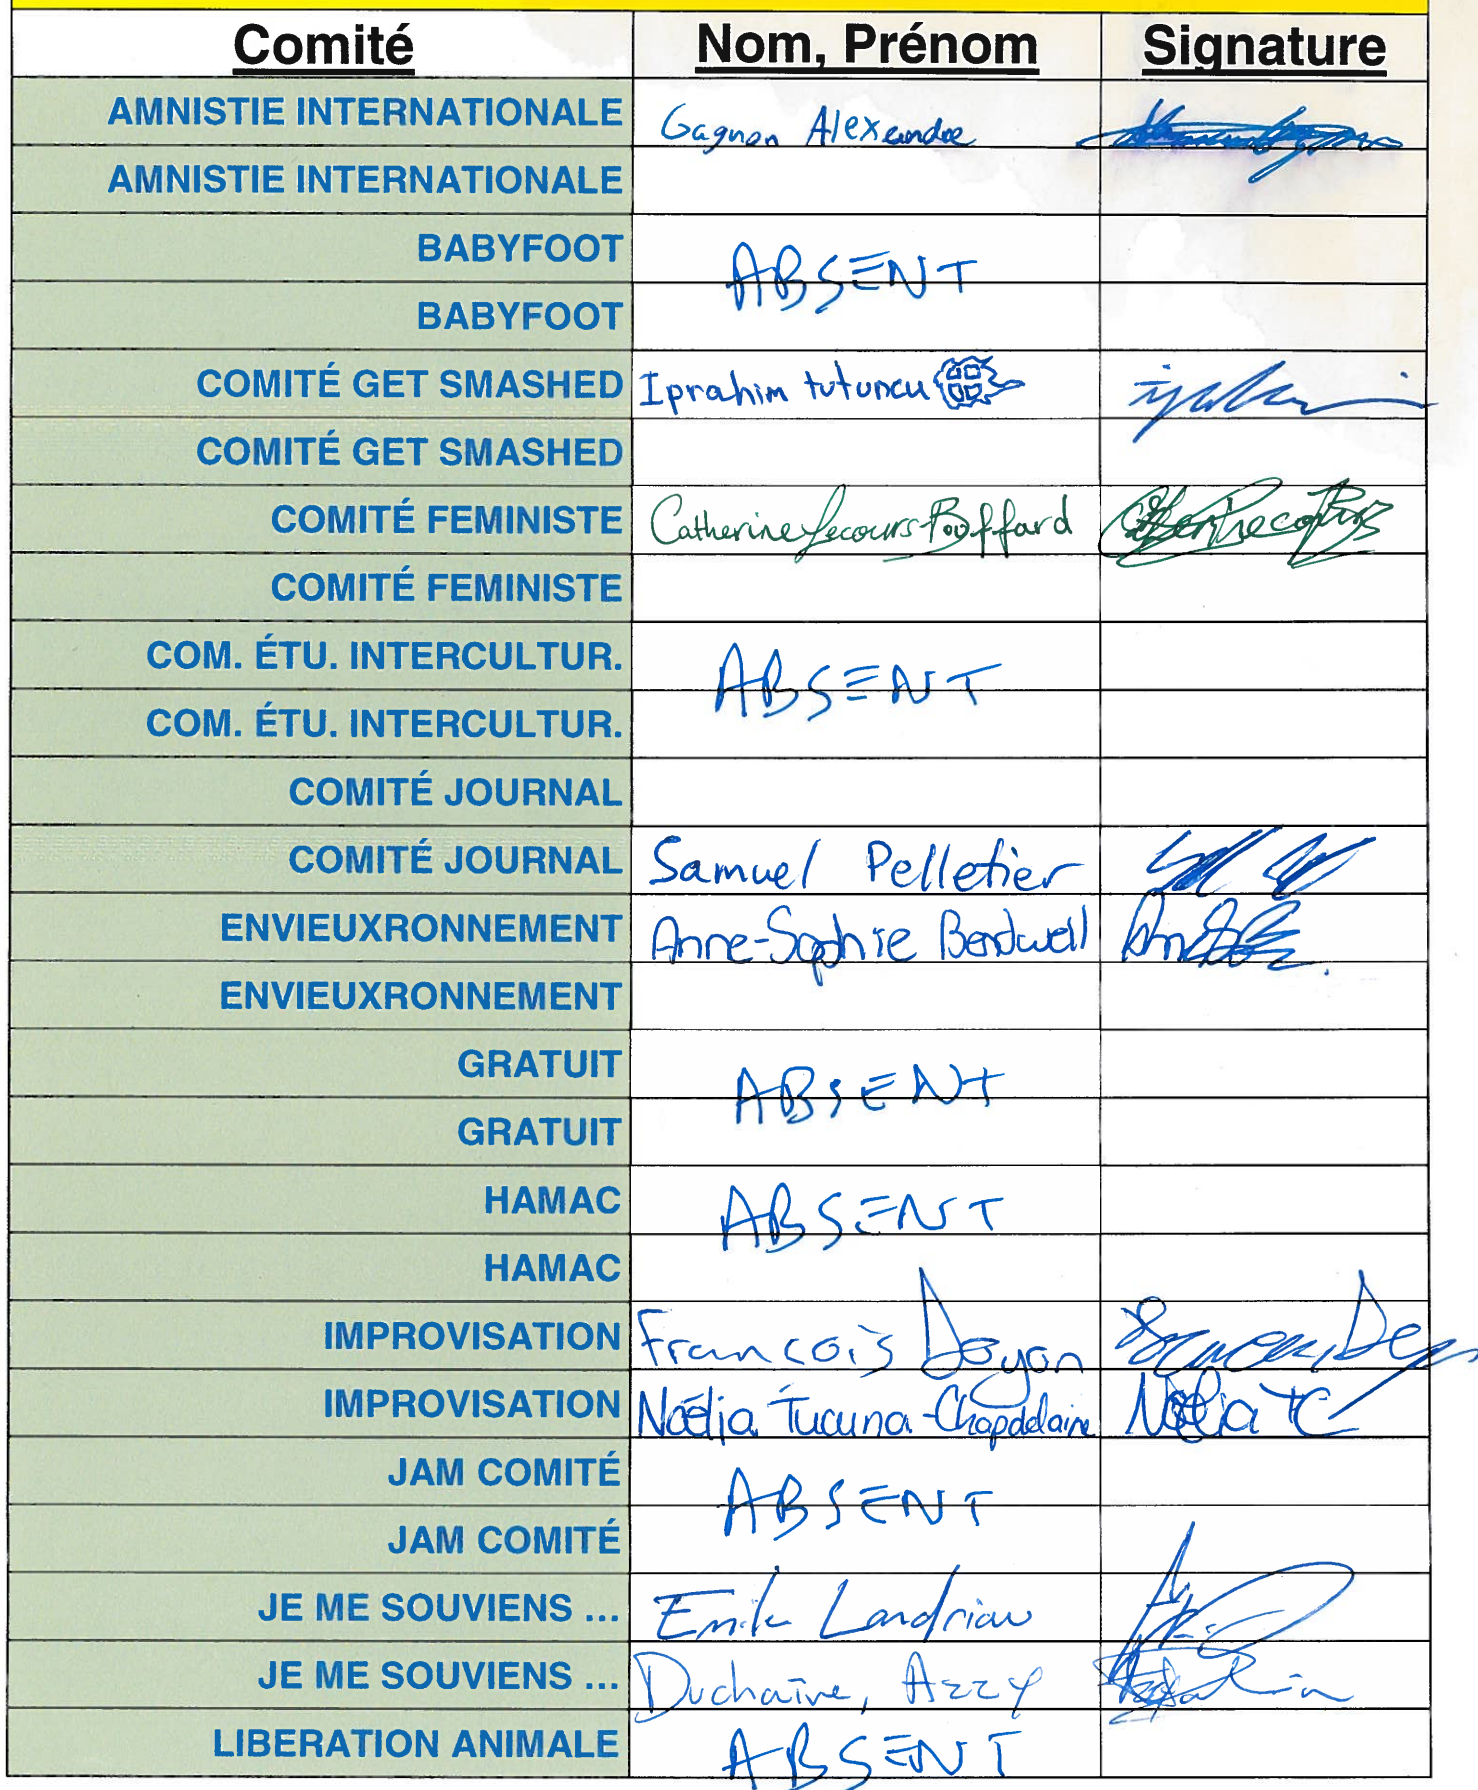 Comité Nom, Prénom Signature
AMNISTIE INTERNATIONALE Gagnon Alexandre
AMNISTIE INTERNATIONALE
BABYFOOT ABSENT
BABYFOOT
COMITÉ GET SMASHED Iprahim tutuncu
COMITÉ GET SMASHED
COMITÉ FEMINISTE Catherine Lecours-Bouffard
COMITÉ FEMINISTE
COM. ÉTU. INTERCULTUR. ABSENT
COM. ÉTU. INTERCULTUR.
COMITÉ JOURNAL
COMITÉ JOURNAL Samuel Pelletier
ENVIEUXRONNEMENT Anne-Sophie
ENVIEUXRONNEMENT
GRATUIT ABSENT
GRATUIT
HAMAC ABSENT
HAMAC
IMPROVISATION Francois Doyon
IMPROVISATION Noélia Tucuna-Chapdelaine Noélia TC
JAM COMITÉ ABSENT
JAM COMITÉ
JE ME SOUVIENS ... Emile Landriau
JE ME SOUVIENS ... Duchaîne, Azzy
LIBERATION ANIMALE ABSENT